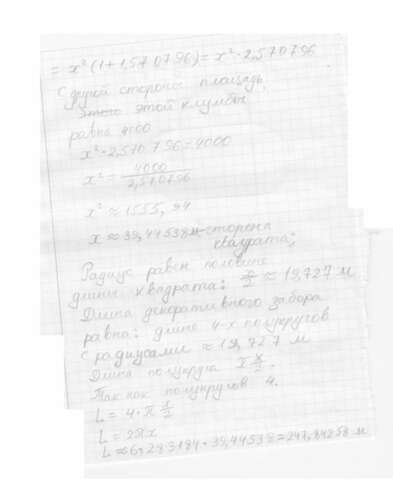 = x² (1+1,570796) = x² · 2,570796
С другой стороны площадь
этой клумбы
равна 4000
x² · 2,570796 = 4000
x² = 4000/2,570796
x² ≈ 1555,94
x ≈ 39,44538 м - сторона
квадрата;
Радиус равен половине
длины квадрата: x/2 ≈ 19,727 м
Длина декоративного забора
равна: длине 4-х полукругов
с радиусами ≈ 19,727 м
Длина полукруга π x/2.
Так как полукругов 4.
L = 4 · π x/2
L = 2πx
L ≈ 6,283184 · 39,44538 = 247,84258 м